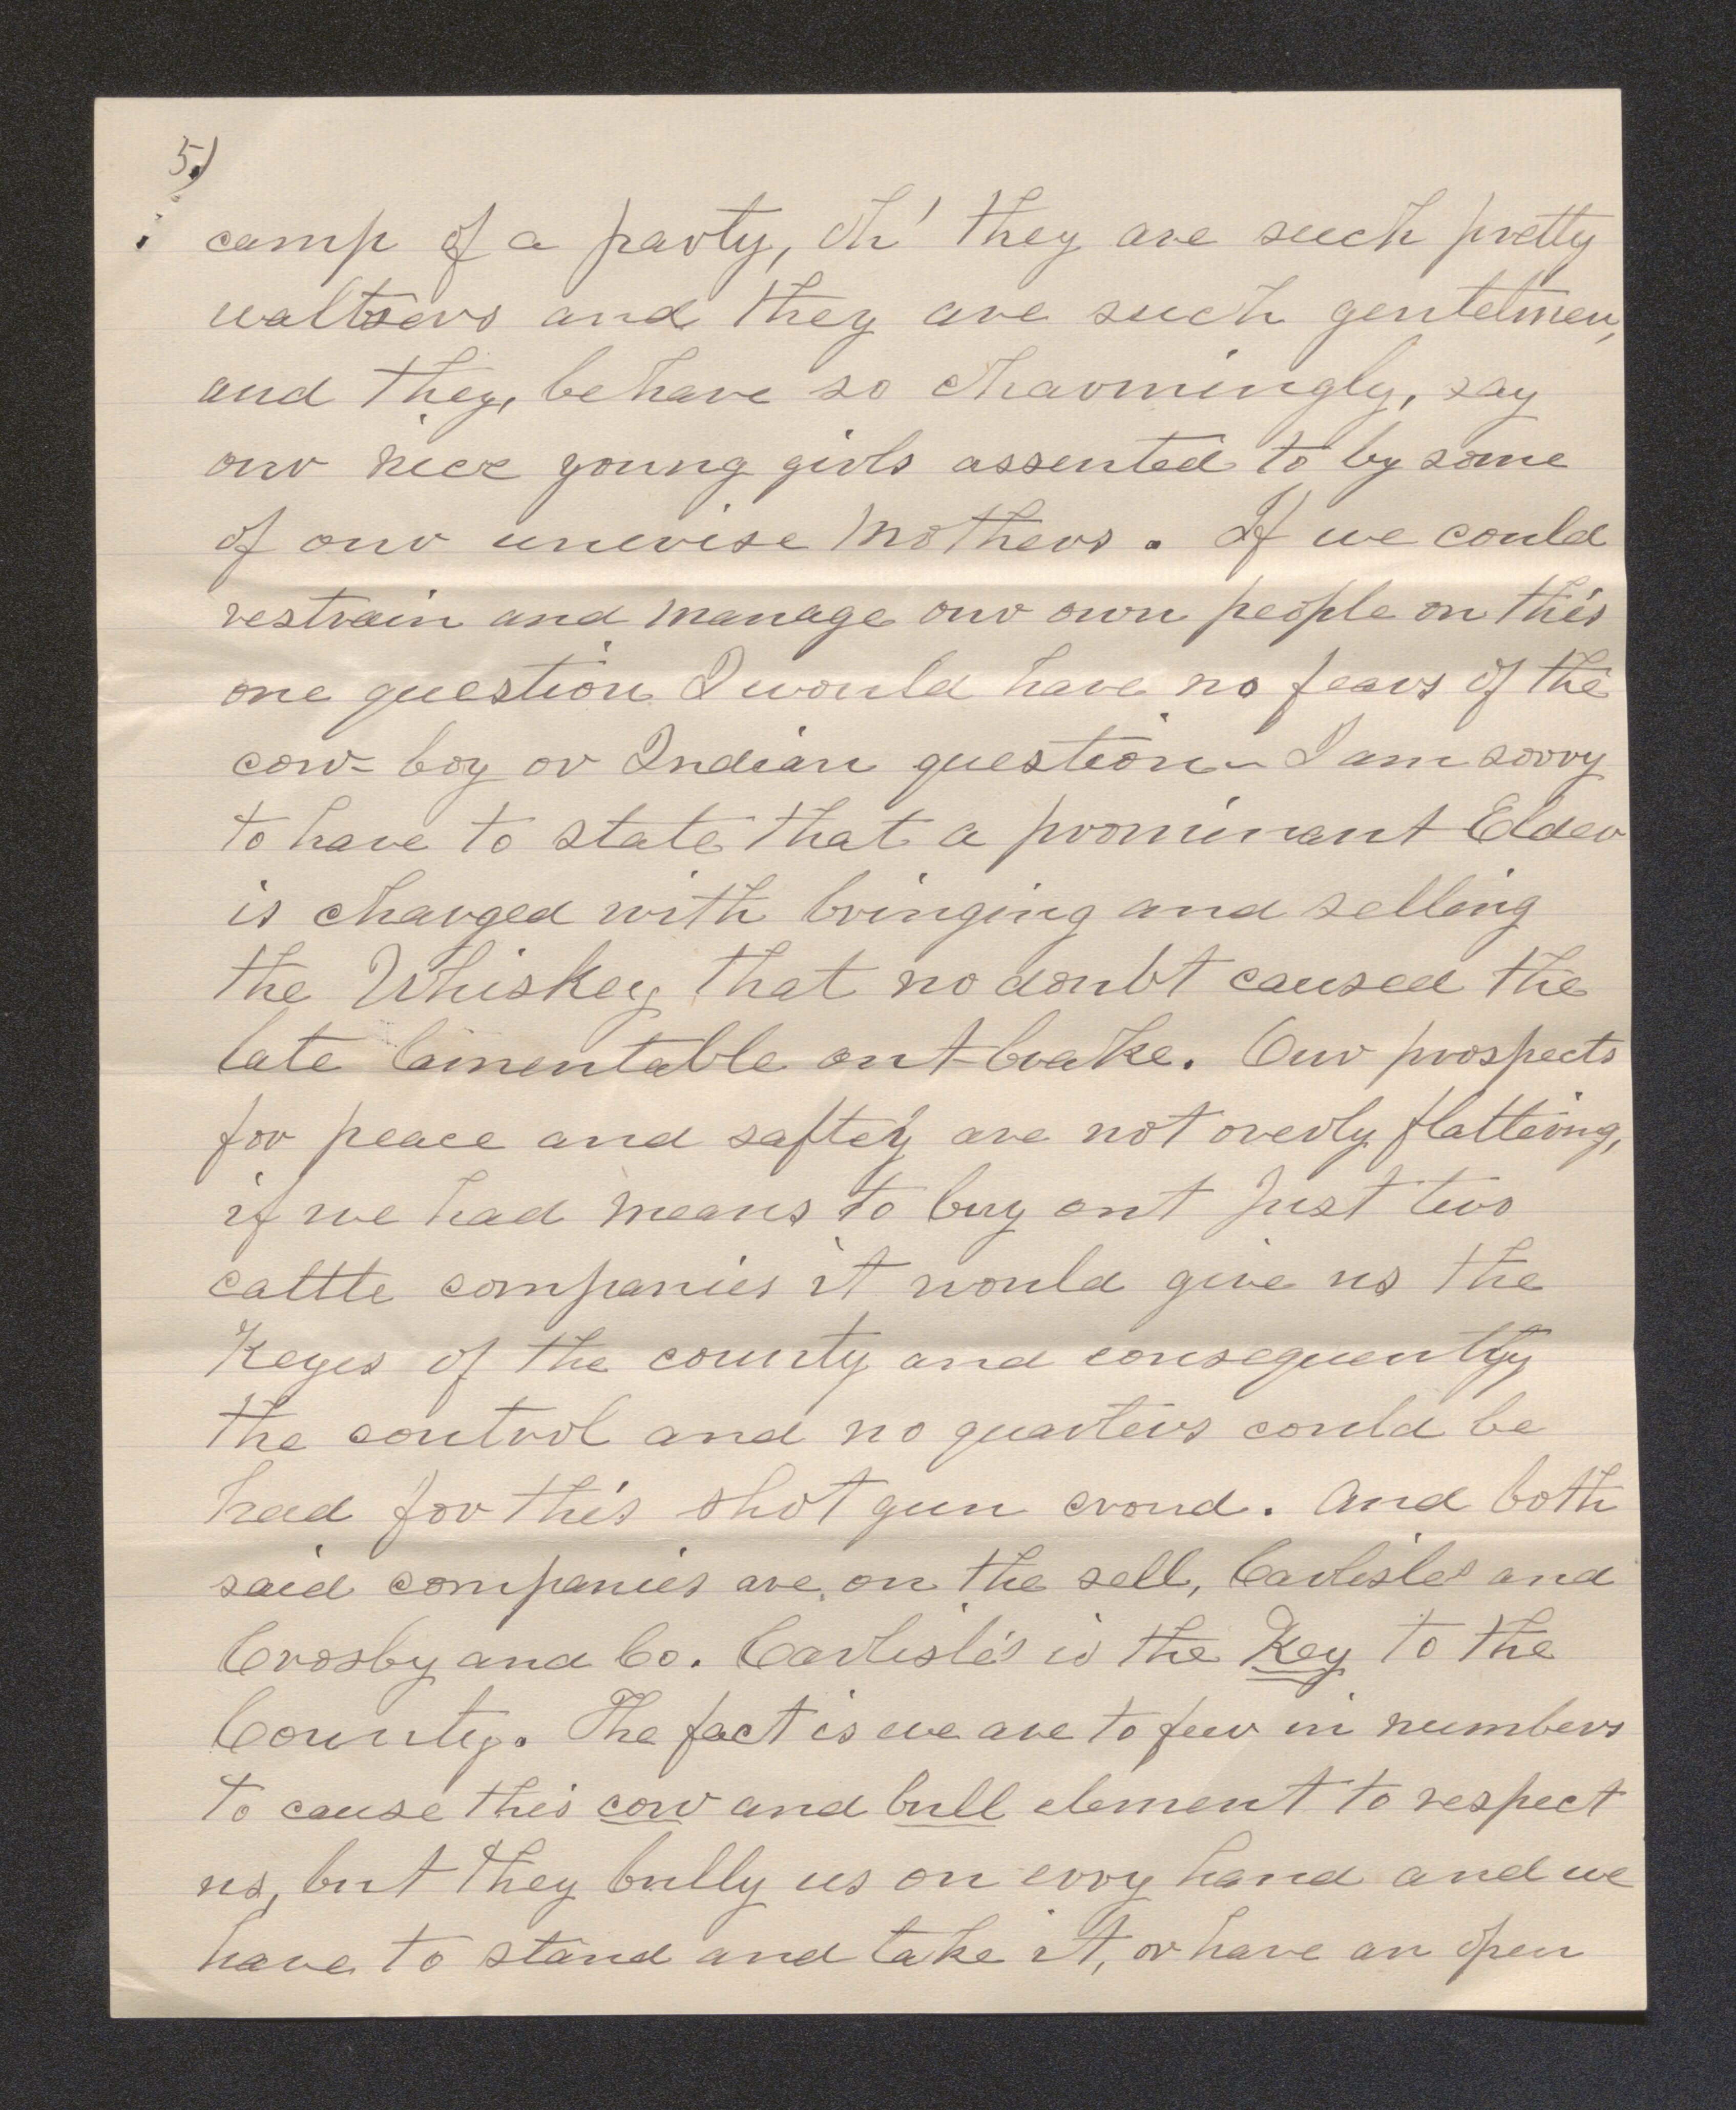 5.)
camp of a party, Oh' they are such pretty
waltsers and they are such gentelmen,
and they, behave so charmingly, say
our nice young girls assented to by some
of our unwise Mothers. If we could
restrain and manage our own people on this
one question I would have no fears of the
cow-boy or Indian question – I am sorry
to have to state that a prominant Elder
is charged with bringing and selling
the Whiskey that no doubt caused the
late lamentable out-brake. Our prospects
for peace and saftey are not overly flattering,
if we had means to buy out just two
cattle companies it would give us the
Keyes of the county and consequently
the control and no quarters could be
had for this shot gun croud. And both
said companies are on the sell, Carlisle's and
Crosby and Co. Carlisle's is the Key to the
County. The fact is we are to few in numbers
to cause this cow and bull element to respect
us, but they bully us on evry hand and we
have to stand and take it, or have an open